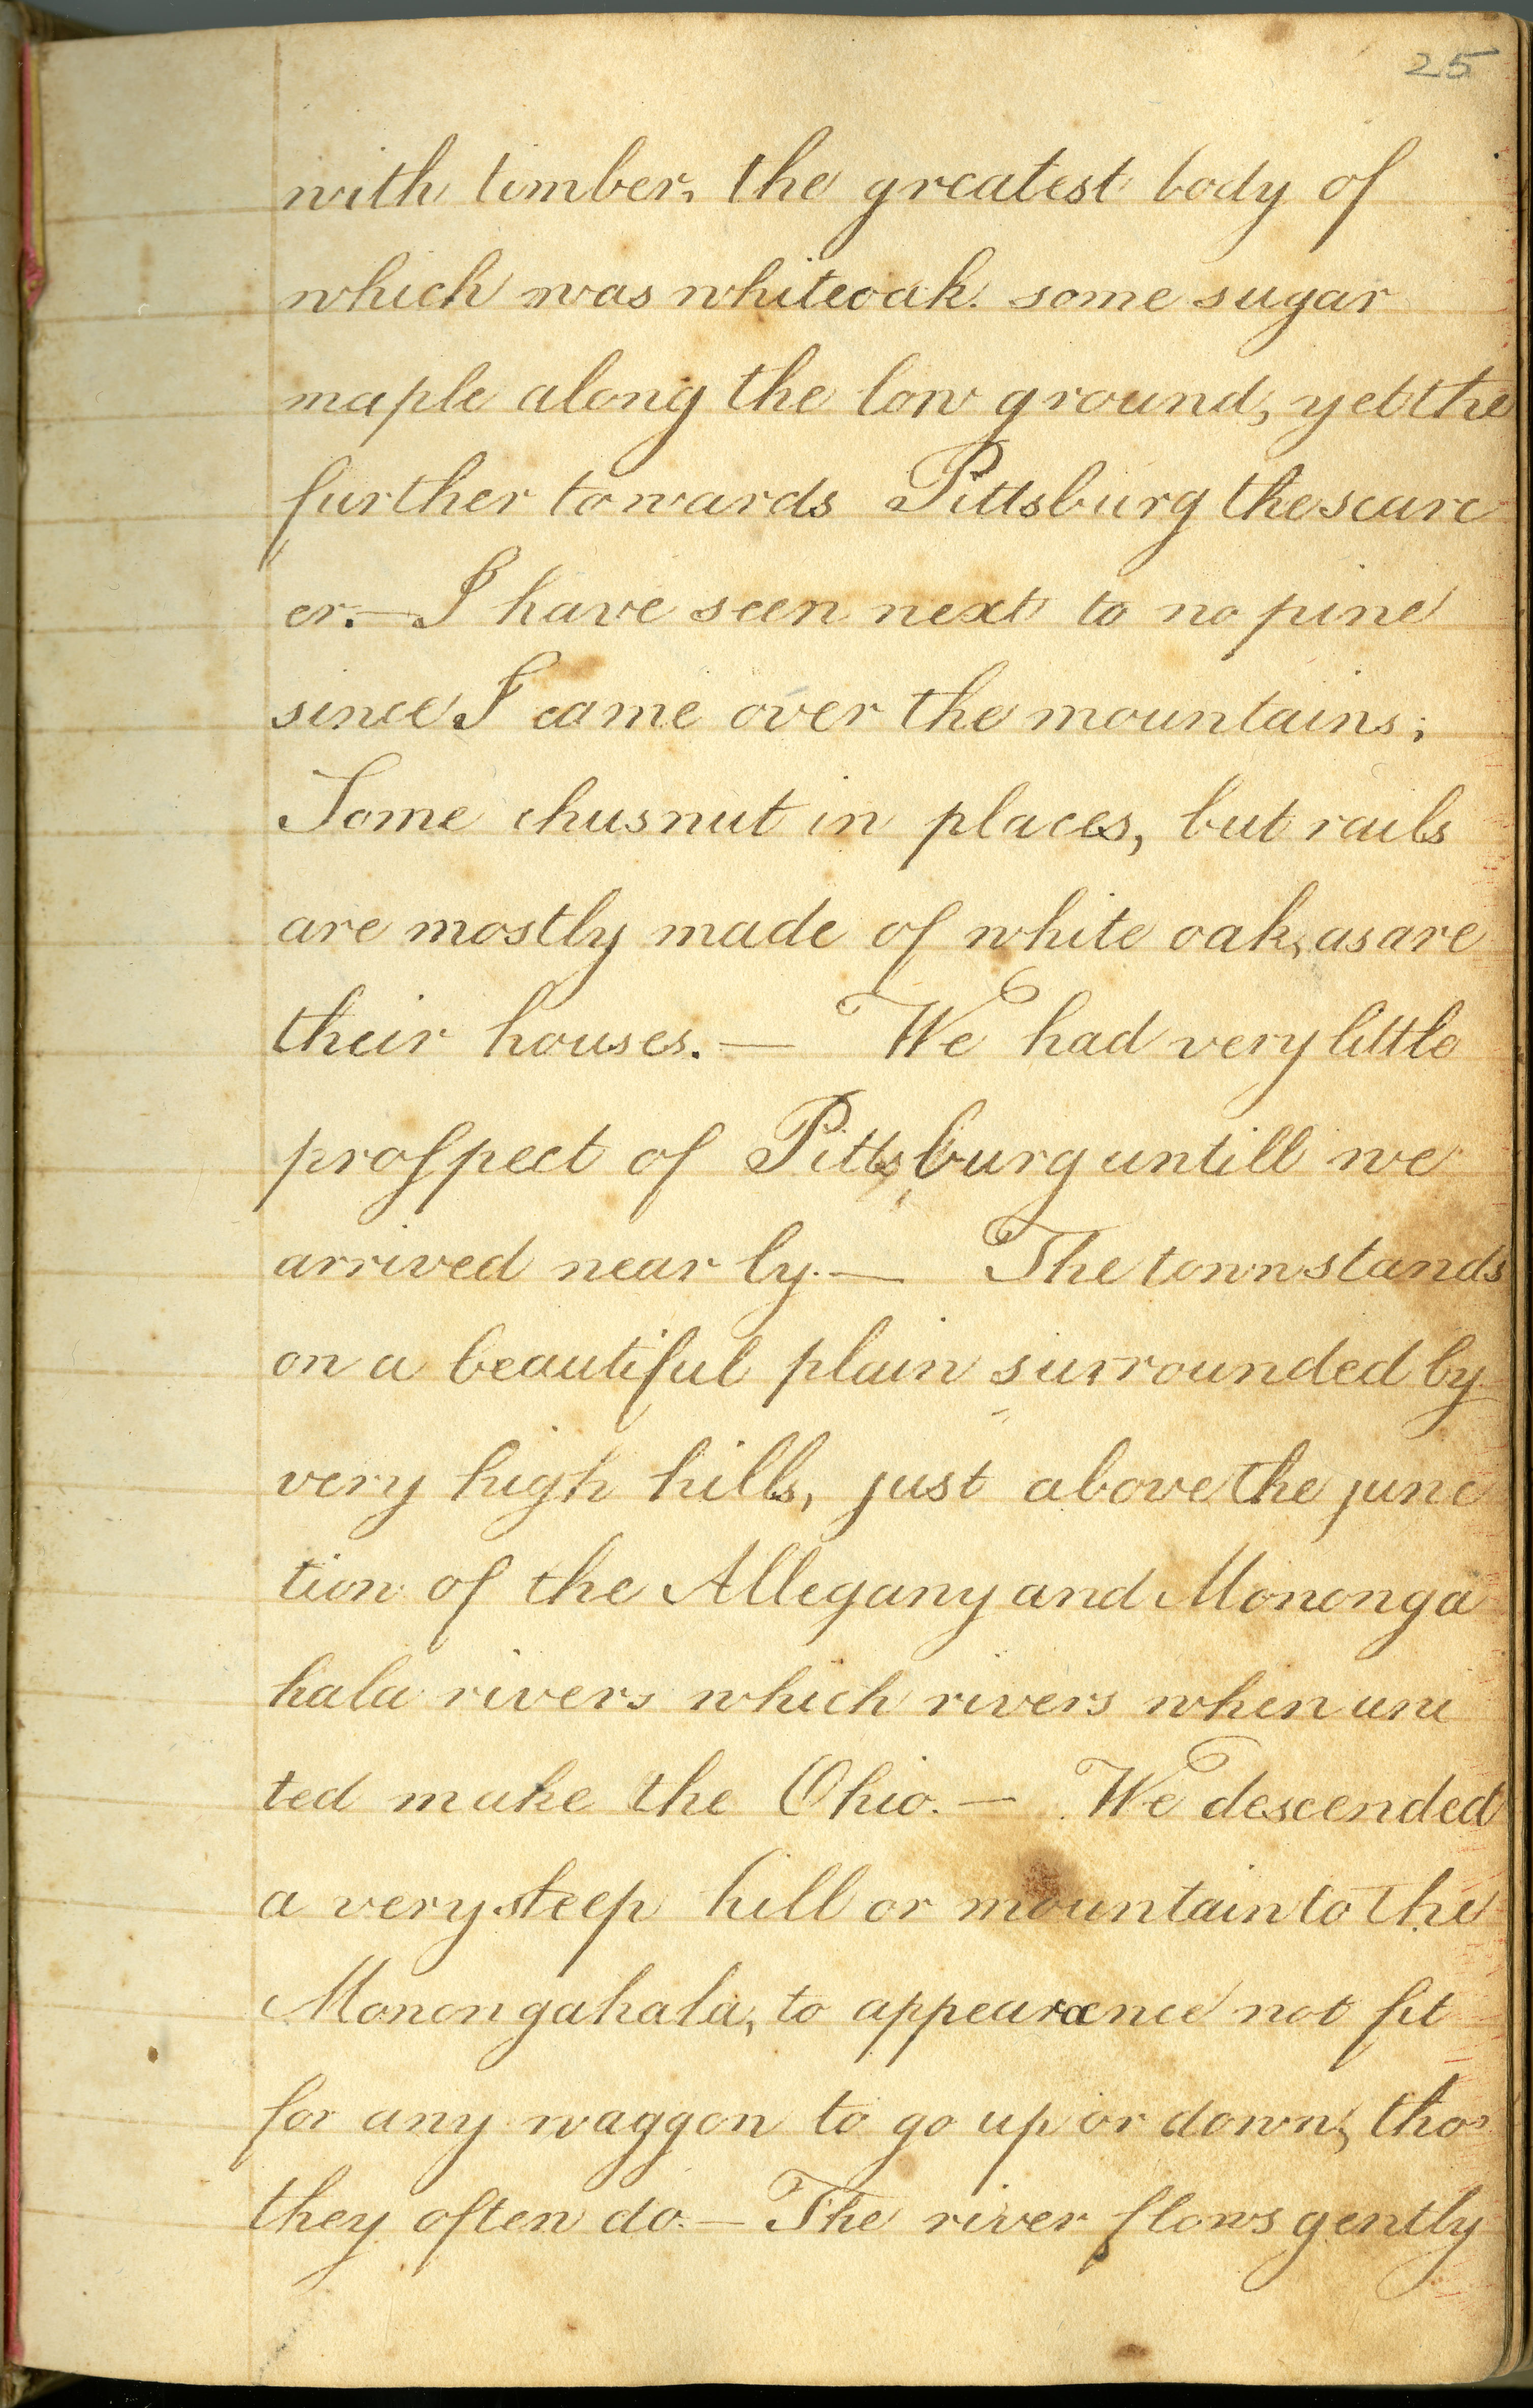 25
with timber, the greatest body of
which was whiteoak. some sugar
maple along the low ground, yet the
further towards Pittsburg the scarc
er.— I have seen next to no pine
since I came over the mountains;
Some chusnut in places, but rails
are mostly made of white oak, as are
their houses.— We had very little
prospect of Pittsburg untill we
arrived near by.— The town stands
on a beautiful plain surrounded by
very high hills, just above the junc
tion of the Allegany and Mononga
hala rivers which rivers when uni
ted make the Ohio.— We descended
a very steep hill or mountain to the
Monongahala, to appearance not fit
for any waggon to go up or down, tho'
they often do.— The river flows gently